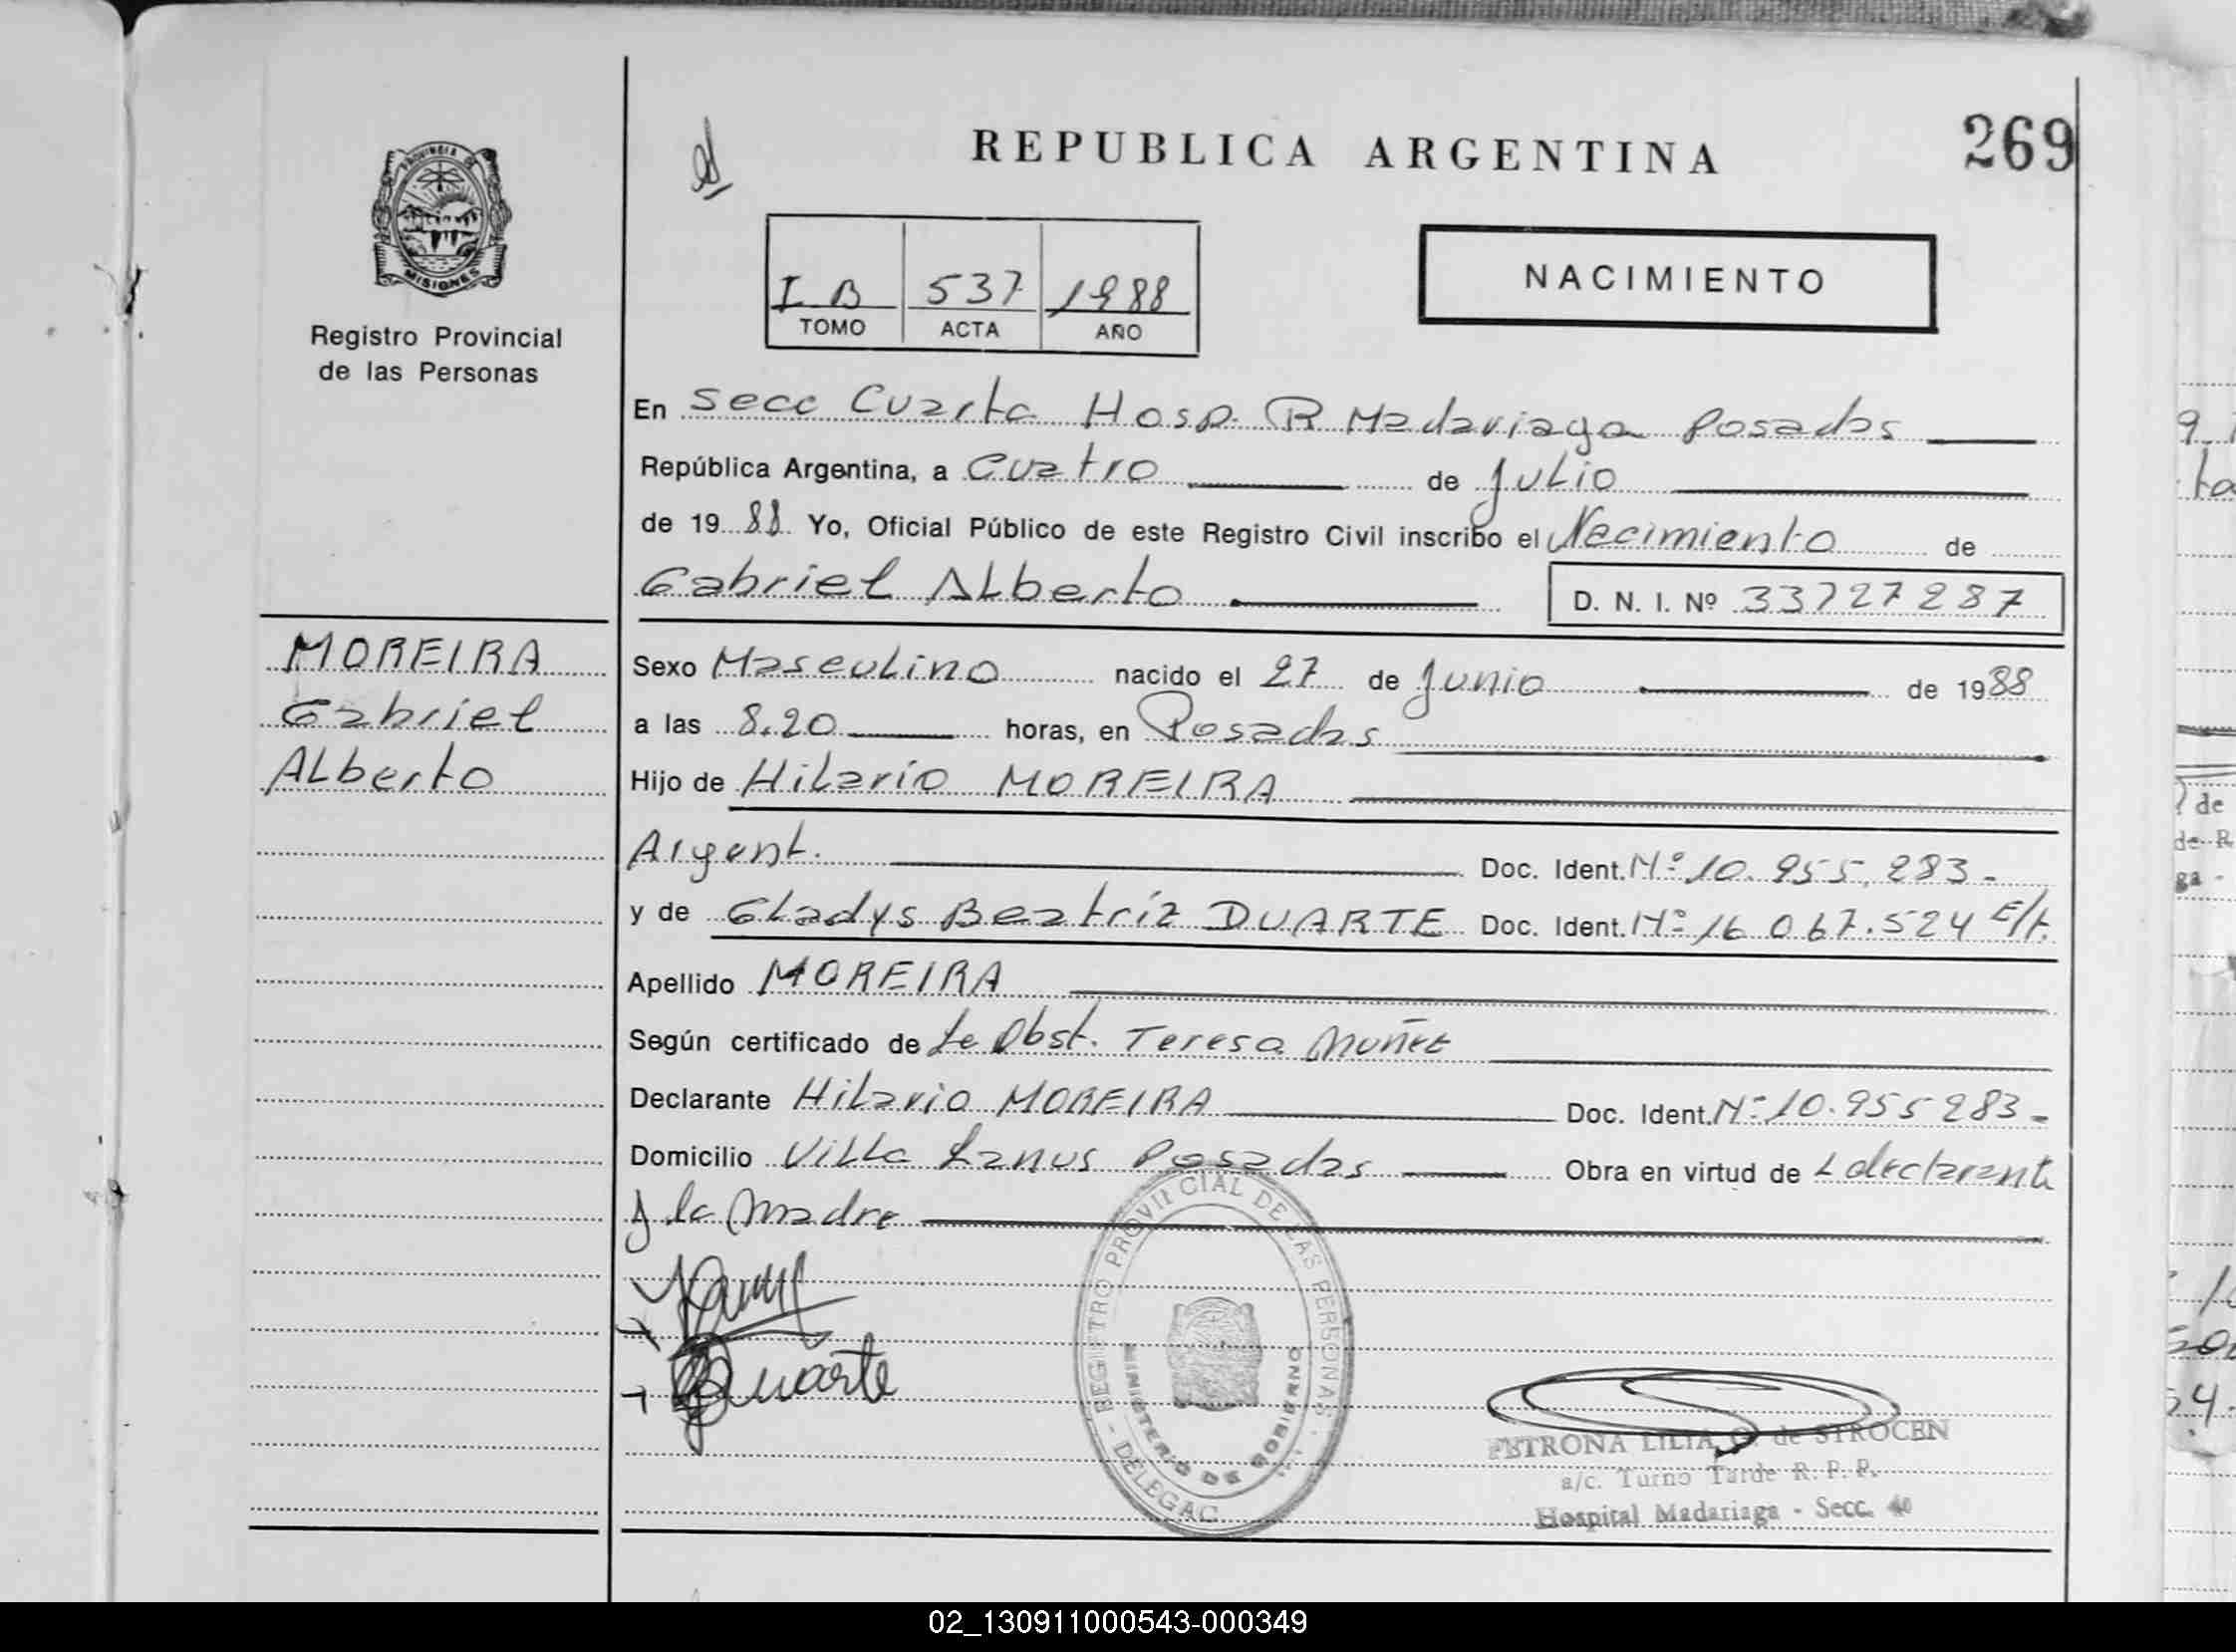 REPUBLICA ARGENTINA
269
PROVINCIA DE
MISIONES
Registro Provincial
de las Personas
I B 537 1988
TOMO ACTA AÑO
NACIMIENTO
En Secc Cuarta Hosp. R Madariaga Posadas
República Argentina, a Cuatro de Julio
de 1988 Yo, Oficial Público de este Registro Civil inscribo el Nacimiento de
Gabriel Alberto D. N. I. Nº 33727287
MOREIRA
Gabriel
Alberto
Sexo Masculino nacido el 27 de Junio de 1988
a las 8.20 horas, en Posadas
Hijo de Hilario MOREIRA
Argent. Doc. Ident. Nº 10.955.283-
y de Gladys Beatriz DUARTE Doc. Ident. Nº 16 067.524 E/t.
Apellido MOREIRA
Según certificado de La Obst. Teresa Muñez
Declarante Hilario MOREIRA Doc. Ident. Nº 10.955 283-
Domicilio Villa Lanus Posadas Obra en virtud de L declarante
y la Madre
Duarte
REGISTRO PROVINCIAL DE LAS PERSONAS - DELEGAC
MINISTERIO DE GOBIERNO
PETRONA LILIA de SIROCEN
a/c. Turno Tarde R. P. P.
Hospital Madariaga - Secc. 4º
02_130911000543-000349